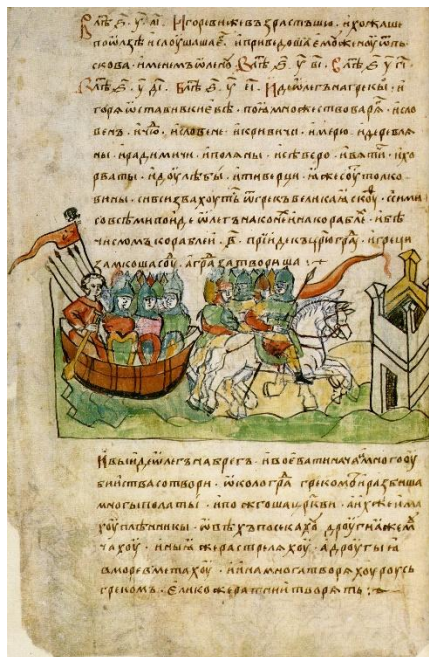 В лѣⷮ ҂ѕ҃. у҃. аі҃. Игоревиже възрастъшю. ихожаше
поѡлзѣ ислоушашаеⷢ. иприведоша емоу женоу ѿпь
скова. именемъ ѡленоу. В лѣⷮ ҂ѕ҃. у҃ ві҃. В лѣⷮ ҂ѕ҃. у҃ гі҃.
В лѣⷮ ҂ѕ҃. у҃ ді҃. В лѣⷮ ҂ѕ҃. у҃ еі҃. Иде ѡлегъ нагрекы. и
горя ѡставивъ киевѣ. поꙗ множество варяⷢ. исло
венъ. ичюⷣ. исловене. икривичи. имерю. идеревля
ны. ирадимичи. иполяны. исѣверо. ивятиⷱ. ихо
рваты. идоулѣбы. итиверци. ꙗжесоуⷮ толко
вины. сивси звахоутьⷭ ѿгрекъ великаꙗ скоуⷴ. ссими
совсѣми поиде ѡлегъ наконеⷯ инакораблеⷯ. ибѣ
числомъ кораблеи. ҂в҃. прииде къ црⷭ҇ю граⷣ. игреци
замкоша соуⷣ. аграⷣ затвориша
Ивыиде ѡлегъ набрегъ. ивоевати начаⷮ. имногооу
биства сотвори. ѡколо граⷣ грекомъ. иразбиша
многы полаты. ипожгоша церкви. аихже има
хоу плѣнникы. ѡвѣхъ посекахоⷹ. дроугиа жемⷱ
чахоу. иныꙗ же растреляхоу. адроугыꙗ
вморе вметахоу. иина многа творяхоу роусь
грекомъ. елико же ратнии творять